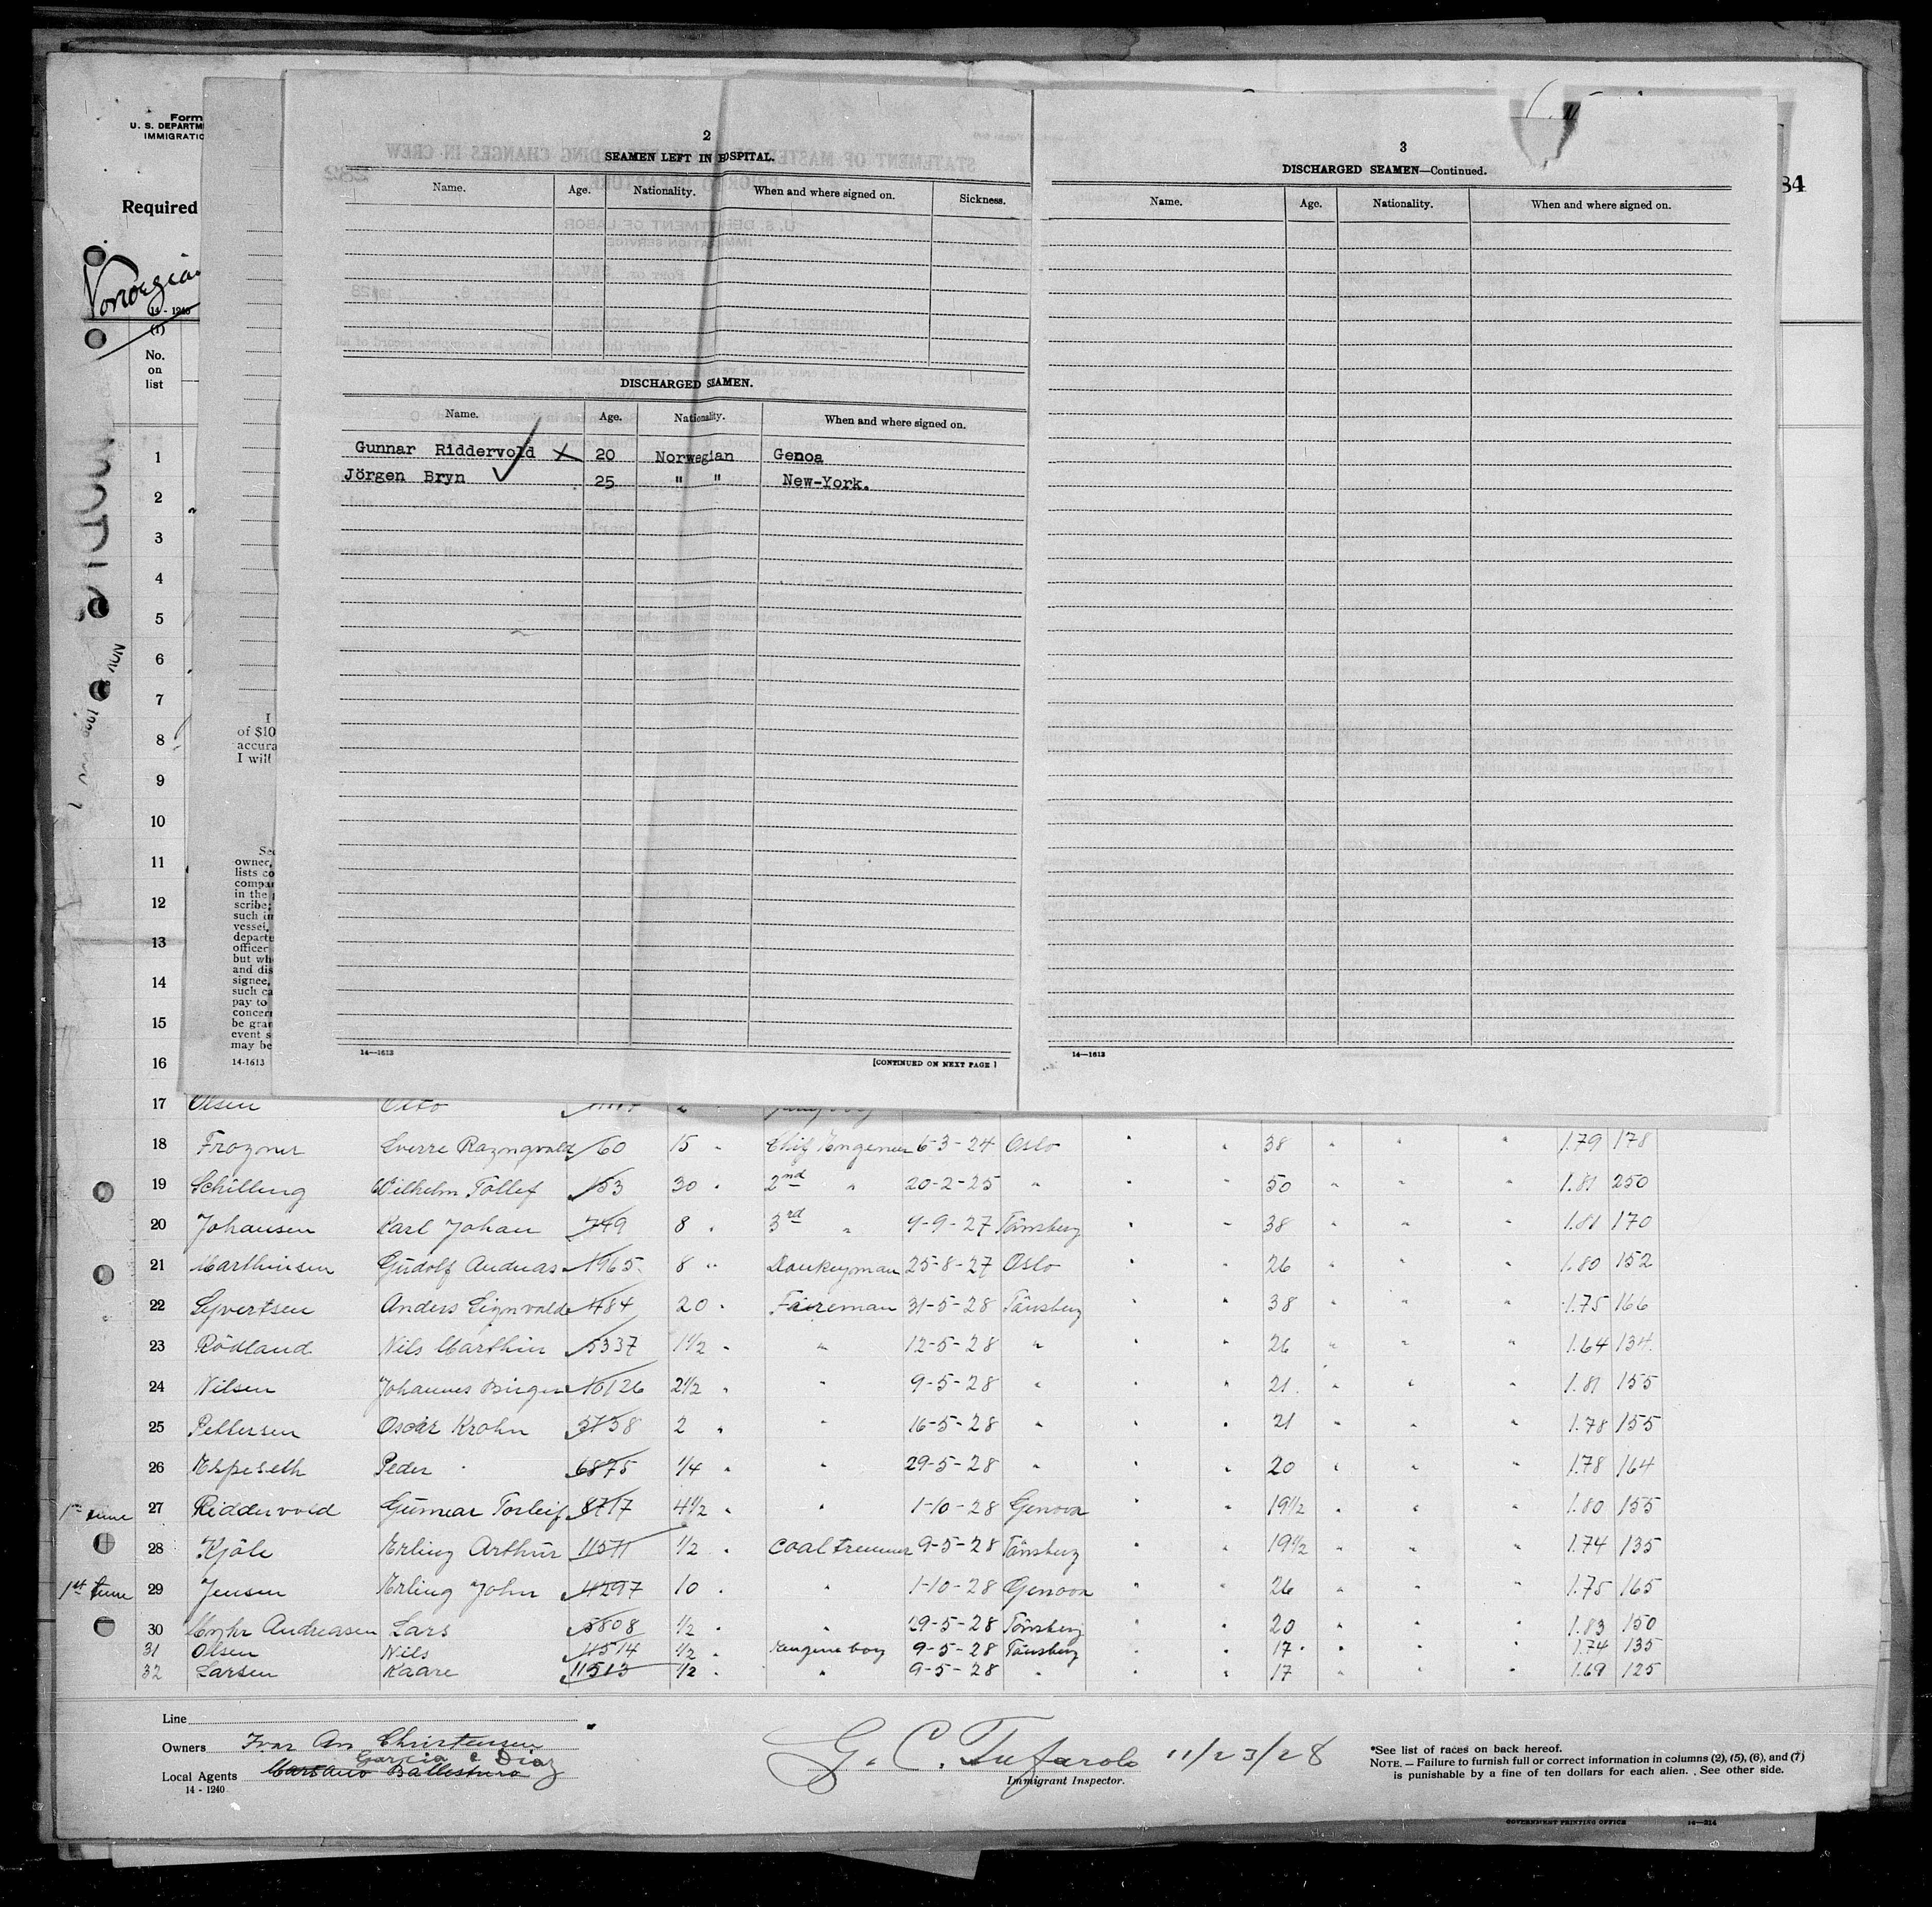 Form
U. S. DEPARTM
IMMIGRATIO
Required
Norwegian
14 - 1240
(1)
No.
on
list
84
2
SEAMEN LEFT IN HOSPITAL.
Name. Age. Nationality. When and where signed on. Sickness.
DISCHARGED SEAMEN.
Name. Age. Nationality. When and where signed on.
Gunnar Riddervold X 20 Norwegian Genoa
Jörgen Bryn 25 " " New-York.
14—1613
[CONTINUED ON NEXT PAGE]
3
DISCHARGED SEAMEN—Continued.
Name. Age. Nationality. When and where signed on.
14—1613
1
2
3
4
5
6
7
8
9
10
11
12
13
14
15
16
I
of $10
accura
I will
Sec
owner,
lists co
compan
in the
scribe;
such in
vessel,
departe
officer
but wh
and dis
signee,
such ca
pay to
concern
be gran
event s
may be
14-1613
17 Olsen Otto
18 Sverre 60 15 " 6-3-24 Oslo " " 38 " " " 1.79 178
19 Schilling Wilhelm Tollef 153 30 " 2nd " 20-2-25 " " " 50 " " " 1.81 250
20 Johansen Karl Johan 749 8 " 3rd " 9-9-27 Tönsberg " " 38 " " " 1.81 170
21 Marthinsen Gudolf Andreas 1965 8 " Donkeyman 25-8-27 Oslo " " 26 " " " 1.80 152
22 Syvertsen Anders 484 20 " Faireman 31-5-28 Tönsberg " " 38 " " " 1.75 166
23 Rödland Nils Marthin 5337 1½ " " 12-5-28 " " " 26 " " " 1.64 134
24 Nilsen Johannes Birger 10126 2½ " " 9-5-28 " " " 21 " " " 1.81 155
25 Pettersen Oscar Krohn 3738 2 " " 16-5-28 " " " 21 " " " 1.78 155
26 Espeseth Peder 6875 ¼ " " 29-5-28 " " " 20 " " " 1.78 164
27 Riddervold Gunnar Torleif 8717 4½ " " 1-10-28 Genova " " 19½ " " " 1.80 155
28 Kjöle Erling Arthur 11511 ½ " coal tremmer 9-5-28 Tönsberg " " 19½ " " " 1.74 135
1st time 29 Jensen Erling John 4297 10 " " 1-10-28 Genova " " 26 " " " 1.75 165
30 Myhr Andreasen Lars 5808 ½ " " 29-5-28 Tönsberg " " 20 " " " 1.83 150
31 Olsen Nils 11514 ½ " Engine boy 9-5-28 Tönsberg " " 17 " " " 1.74 135
32 Larsen Kaare 11513 ½ " " 9-5-28 " " " 17 " " " 1.69 125
Line
Owners Ivar An Christensen
Garcia & Diaz
Local Agents
14 - 1240
11/23/28
Immigrant Inspector.
*See list of races on back hereof.
NOTE.—Failure to furnish full or correct information in columns (2), (5), (6), and (7)
is punishable by a fine of ten dollars for each alien. See other side.
GOVERNMENT PRINTING OFFICE 14—314